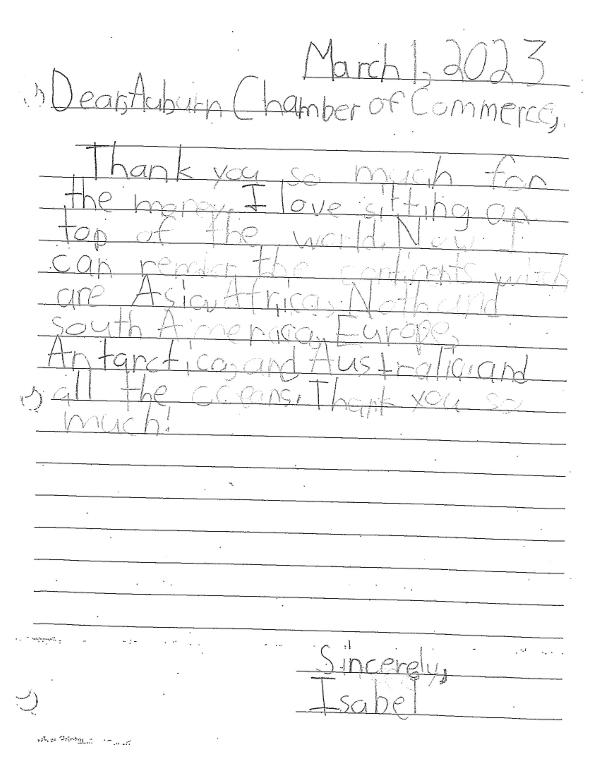 March 1, 2023
Dear, Auburn Chamber of Commerce,
Thank you so much for
the money. I love sitting on
top of the world. Now I
can the continents witch
are Asia, Africa, Noth and
south Aimerica, Europe,
Antarctica, and Australia. and
all the oceans. Thank you so
much!
Sincerely,
Isabel